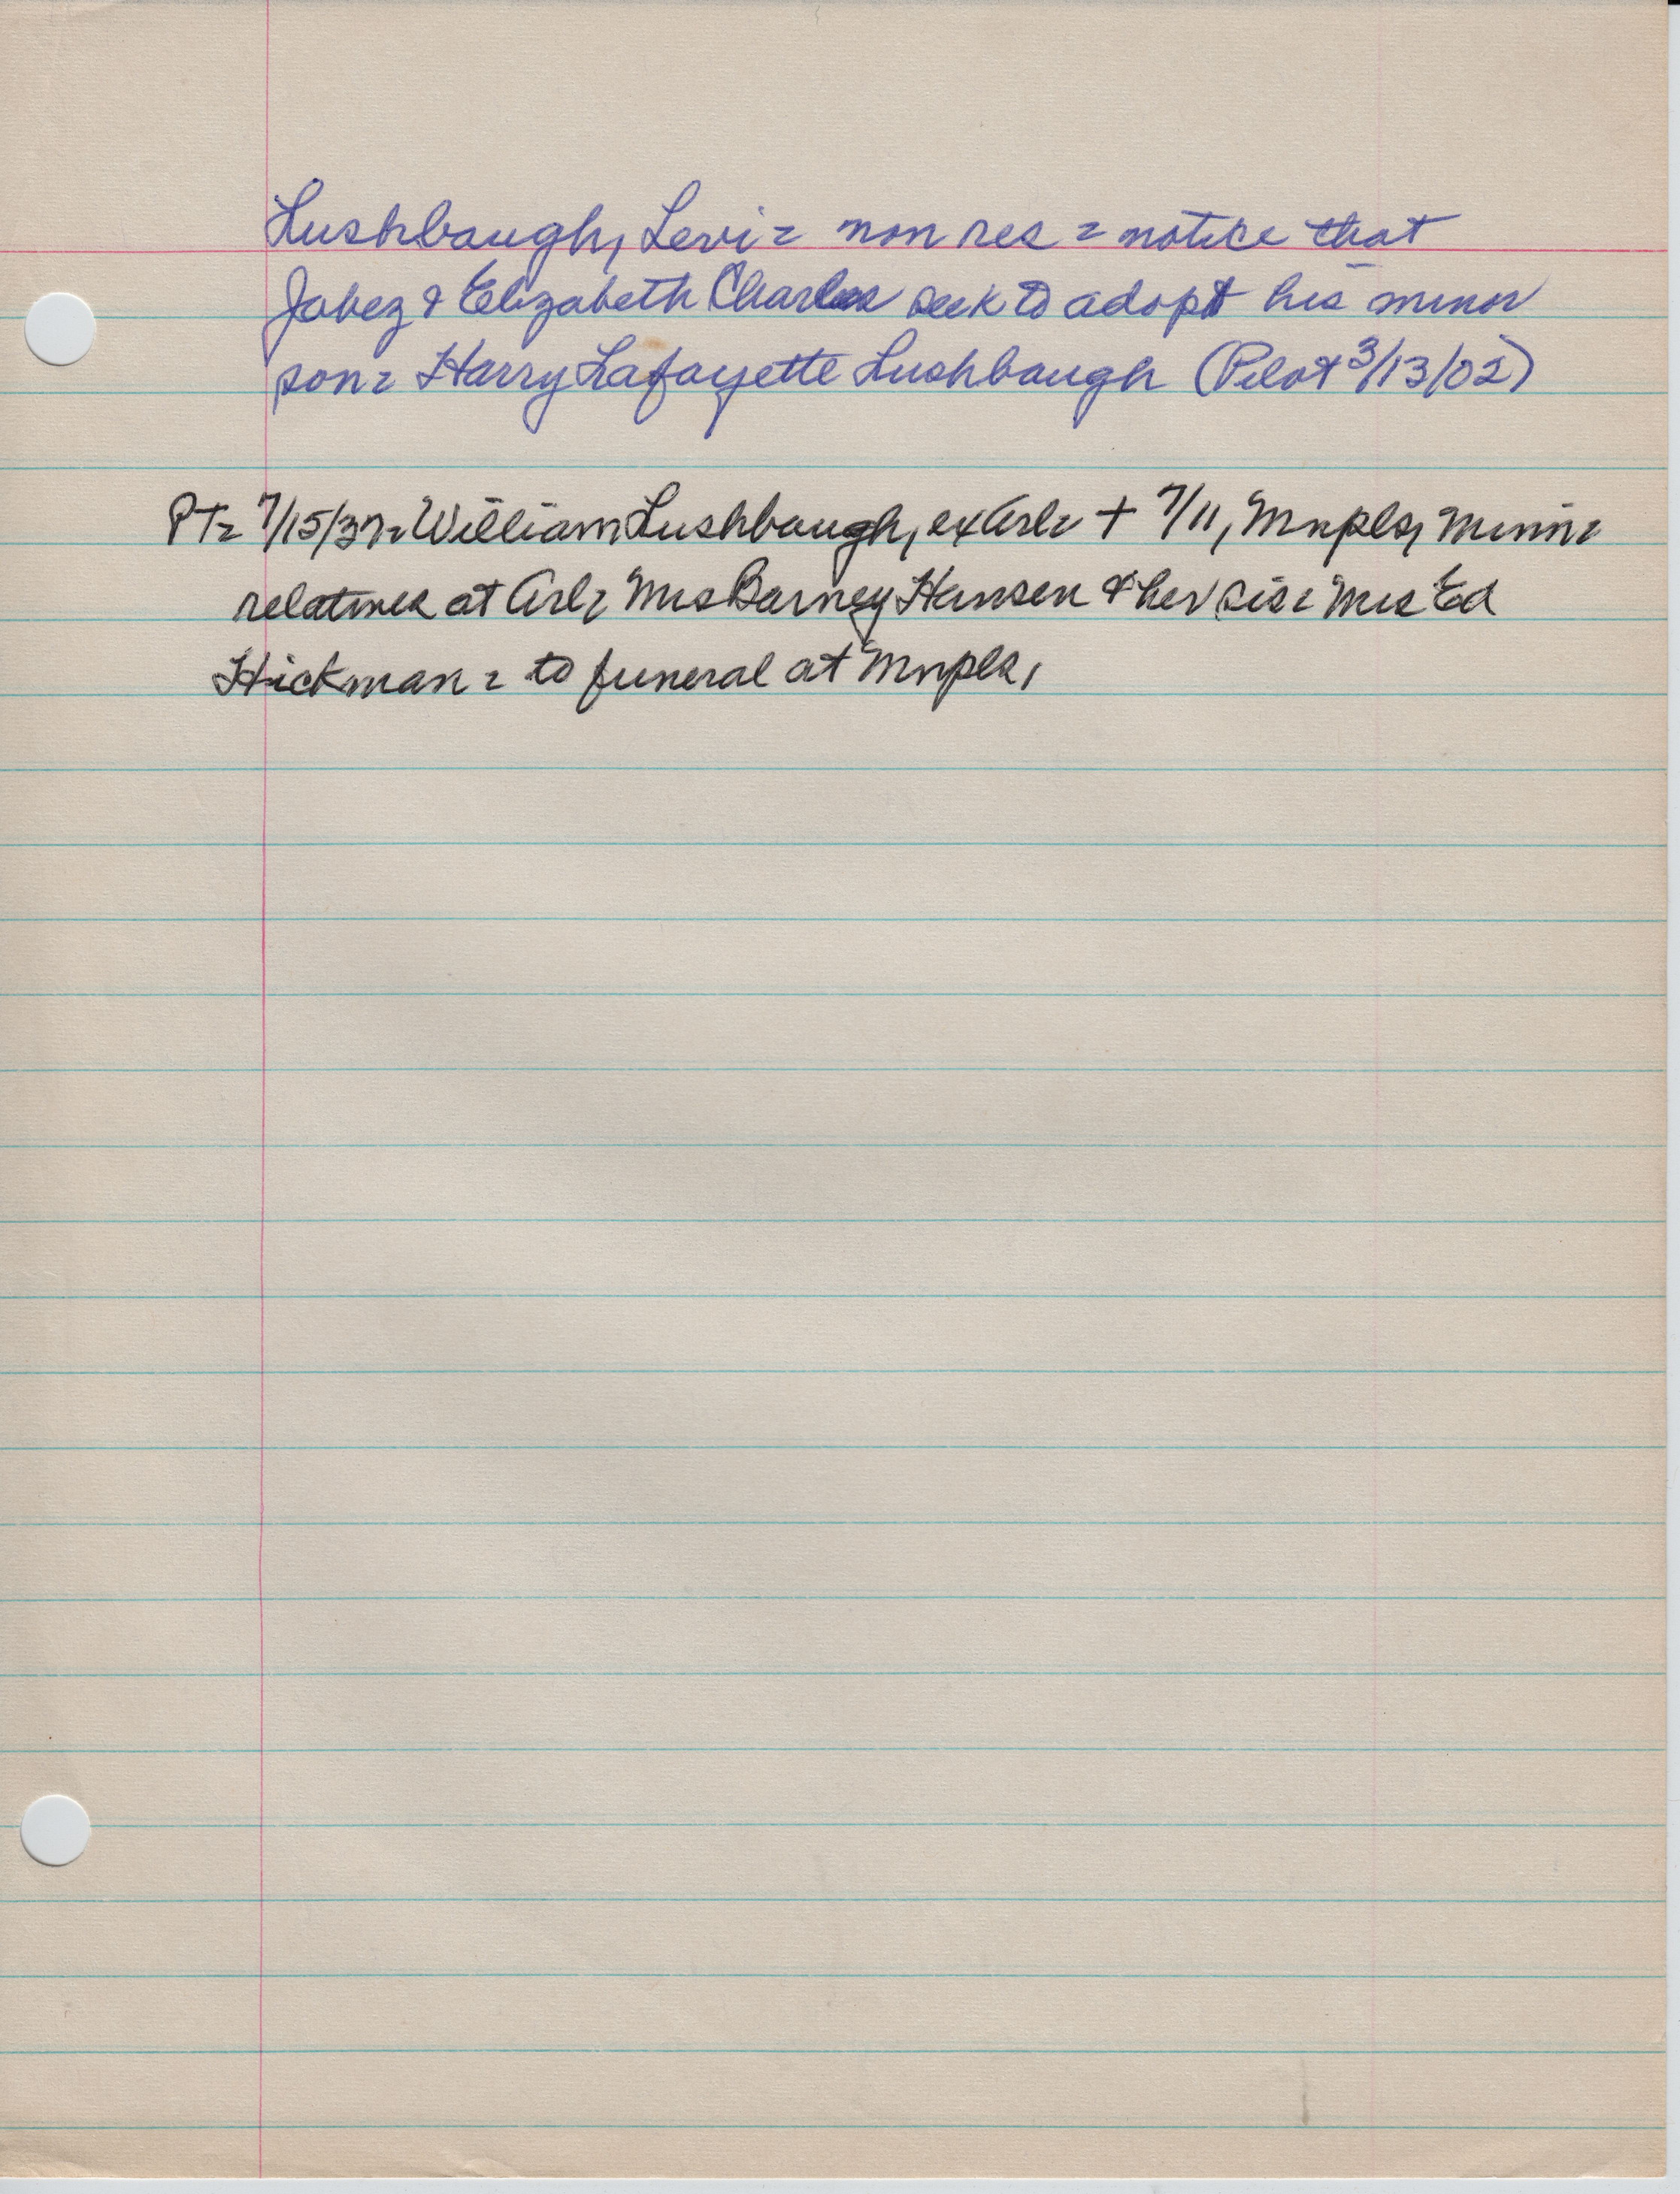 Lushbaugh, Levi = non res = notice that
Jabez & Elizabeth Charles seek to adopt his minor
son = Harry Lafayette Lushbaugh (Pilot 3/13/02)
PT = 7/15/37 = William Lushbaugh, ex Arl = + 7/11, Mnpls, Minn =
relatives at Arl, Mrs Barney Hansen & her sis = Mrs Ed
Hickman = to funeral at Mnpls,